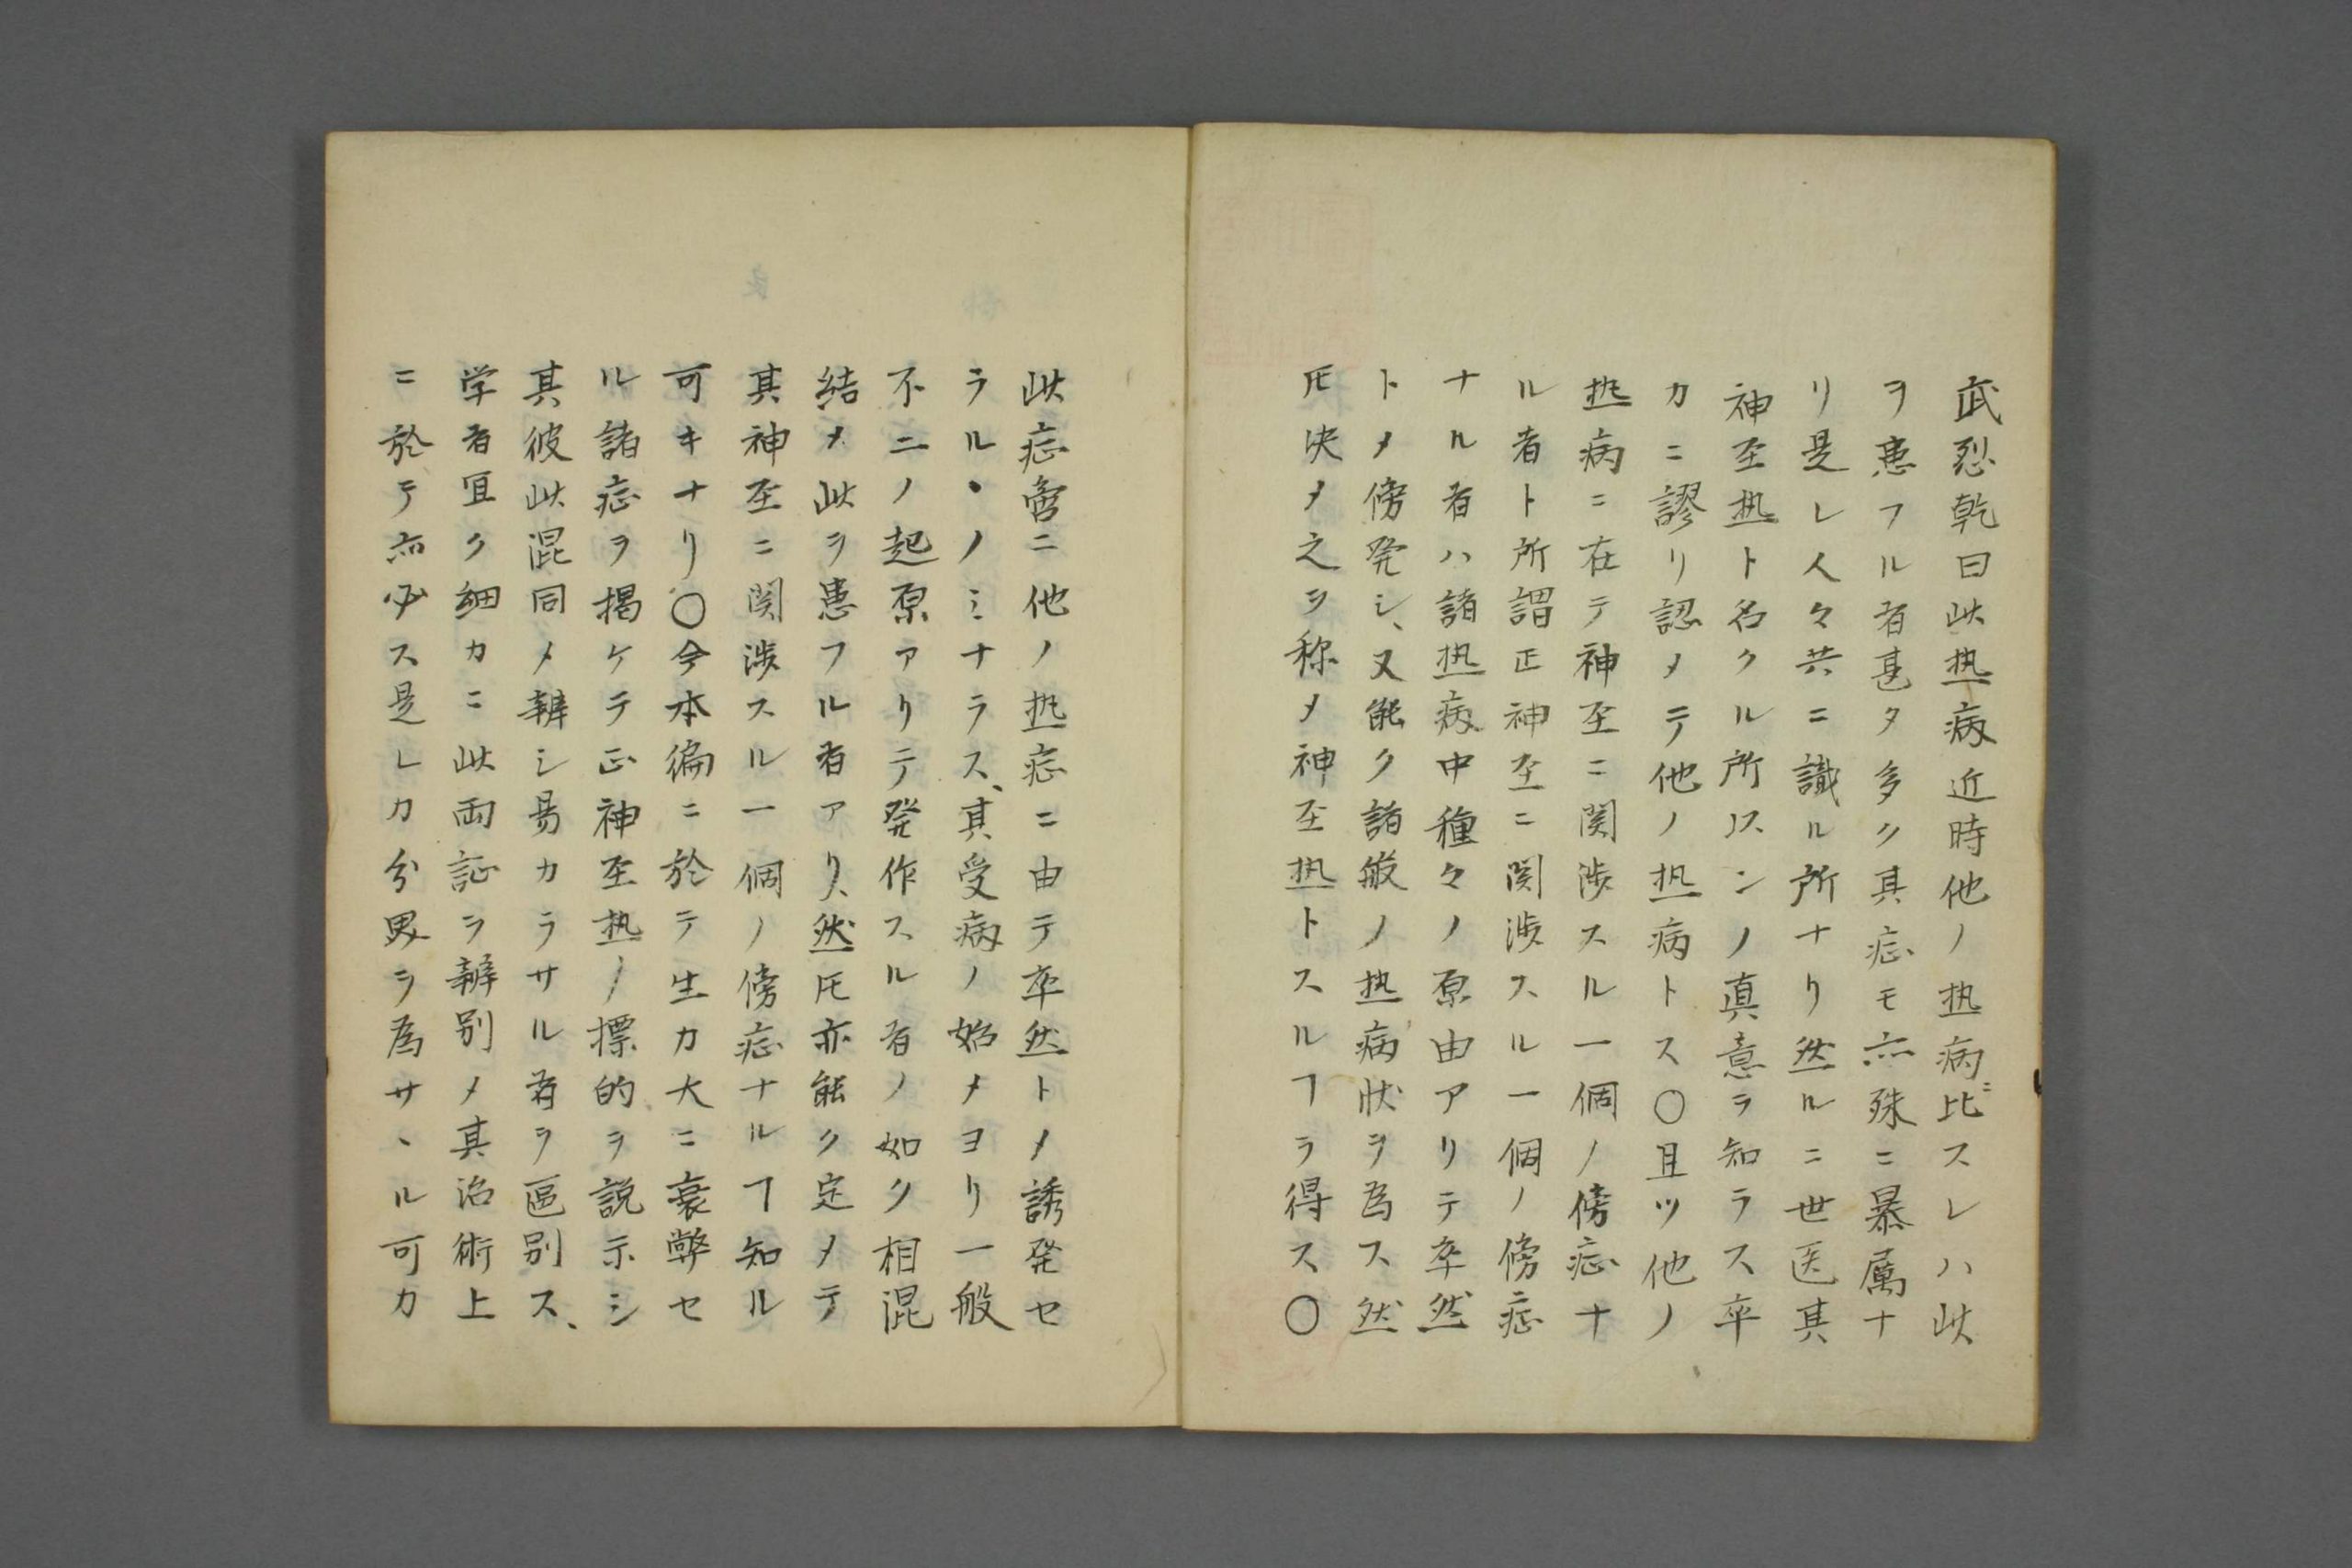 武烈乾曰此热病近時他ノ热病ニ比スレハ此
ヲ患フル者甚タ多ク其症モ亦殊ニ暴厲ナ
リ是レ人々共ニ識ル所ナリ然ルニ世医其
神至热ト名クル所以ンノ真意ヲ知ラス卒
カニ謬リ認メテ他ノ热病トス〇且ツ他ノ
热病ニ在テ神至ニ関渉スル一個ノ傍症ナ
ル者ト所謂正神至ニ関渉スル一個ノ傍症
ナル者ハ諸热病中種々ノ原由アリテ卒然
トメ傍発シ、又能ク諸般ノ热病状ヲ為ス然
𪜈決メ之ヲ称メ神至热トスルヿヲ得ス〇
此症啻ニ他ノ热症ニ由テ卒然トメ誘発セ
ラルヽノミナラス、其受病ノ始メヨリ一般
不二ノ起原アリテ発作スル者ノ如ク相混
結メ此ヲ患フル者アリ、然𪜈亦能ク定メテ
其神至ニ関渉スル一個ノ傍症ナルヿ知ル
可キナリ〇今本編ニ於テ生力大ニ衰弊セ
ル諸症ヲ掲ケテ正神至热ノ摽的ヲ説示シ
其彼此混同メ辨シ易カラサル者ヲ區別ス、
学者宜ク細カニ此両証ヲ辨別メ其治術上
ニ於テ亦必ス是レカ分界ヲ為サヽル可カ